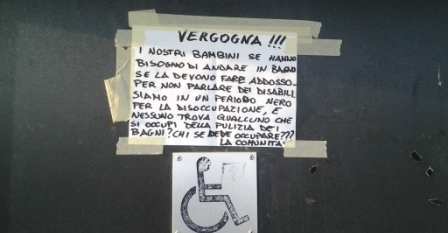 VERGOGNA!!!
I NOSTRI BAMBINI SE HANNO
BISOGNO DI ANDARE IN BAGNO
SE LA DEVONO FARE ADDOSSO.
PER NON PARLARE DEI DISABILI.
SIAMO IN UN PERIODO NERO
PER LA DISOCCUPAZIONE, E
NESSUNO TROVA QUALCUNO CHE
SI OCCUPI DELLA PULIZIA DEI
BAGNI? CHI SE DEDE OCCUPARE???
LA COMUNITÀ